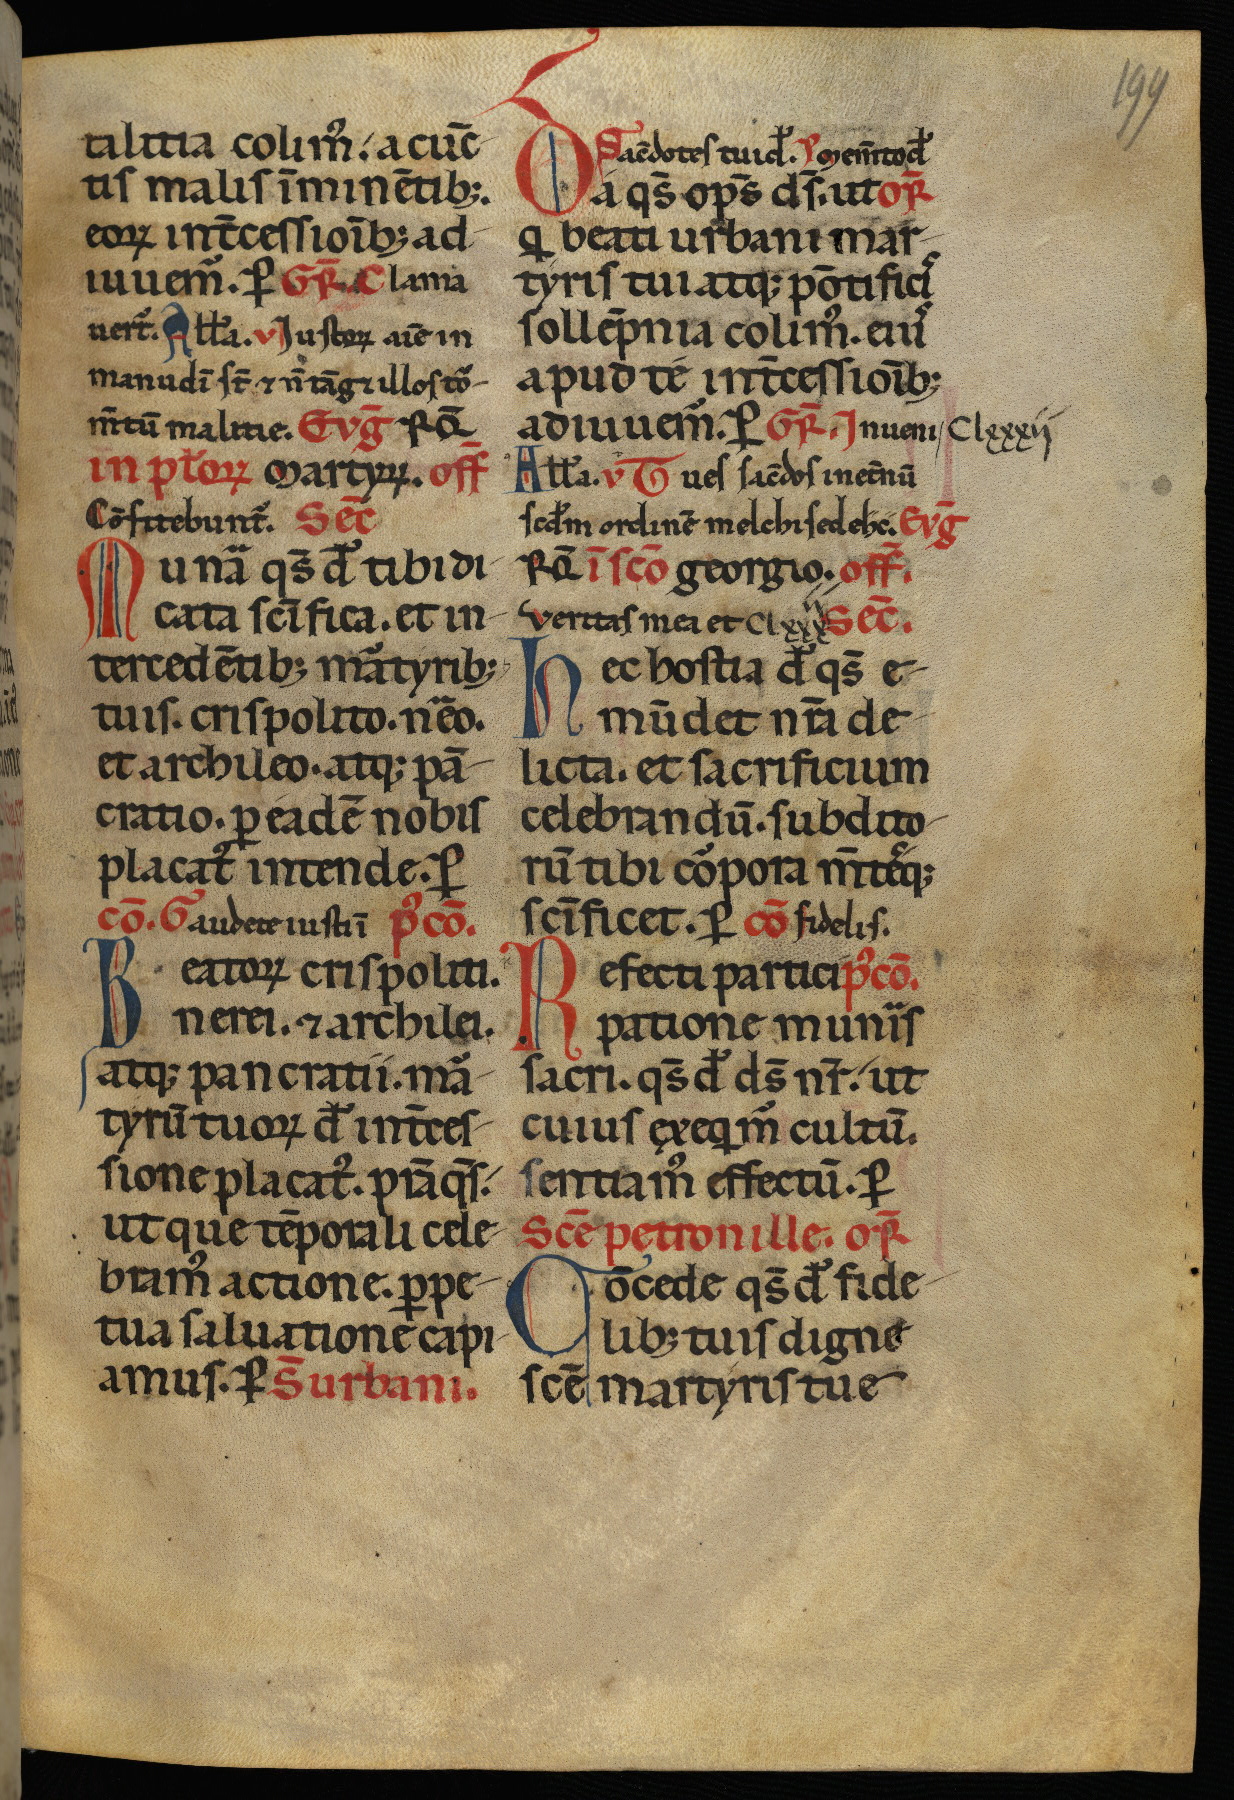 199
talitia colim᷒. a cūc
tis malis īminētib;.
eoꝝ int̄cessioīb; ad
iuuem᷒. ꝑ Gr̄. Clama
uert̄. All'a. v Justoꝝ aīe in
manu dī st̄ ⁊ ñ tāg ⁊ illos to᷒
m̄tū malitie. Evḡ RQ̄
in pl'oꝝ Martyꝝ. off̄
Cōfitebunt᷒. Sec̄
Munā qs̄ d᷒ tibi di
cata sc̄ifica. et in
tercedētib; mātyrib;
tuis. crispolito. nēo.
et archileo. atq; pā
cratio. ꝑ eadē nobis
placat᷒ intende. ꝑ
cō. Gaudete iusti ī p᷒cō.
Beatoꝝ crispoliti.
nerei. ⁊ archilei.
atq; pancratii. mā
tyrū tuoꝝ d᷒ int̄ces
sione placat᷒. p̄rā qs̄.
ut que tēporali cele
bram᷒ actione. ꝑpe
tua saluatione capi
amus. ꝑ S̄ urbani.
Sac̄dotes tui d᷒. Ps Mem̄to d᷒
Da qs̄ op̄s ds̄. ut or̄
qi beati urbani mar
tyris tui atq; pōtific᷒
sollēpnia colim᷒. ei᷒
apud te int̄cessioīb;
adiuuem᷒. ꝑ Gr̄. Jnueni / Clxxxii
All'a. v Tu es sac̄dos in et̄nū
scd᷒m ordinē melchisedehc. Evḡ
RQ̄ ī scō georgio. off̄.
Veritas mea et Clxxx Sec̄.
Hec hostia d᷒ qs̄ e
mūdet nr̄a de
licta. et sacrificium
celebrandū. subdito
rū tibi co᷒pora m̄teq;
sc̄ificet. ꝑ cō fidelis.
Refecti partici p᷒cō.
patione muniis
sacri. qs̄ d᷒ ds̄ nr̄. ut
cuius ęxeqim᷒ cultū.
sentiam᷒ effectū. ꝑ
Scē petronille. or̄
Cōcede qs̄ d᷒ fide
lib; tuis digne
scē martyris tue